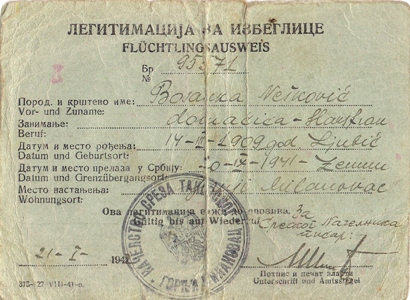 ЛЕГИТИМАЦИЈА ЗА ИЗБЕГЛИЦЕ
FLÜCHTLINGSAUSWEIS
Бр
№ 95571
Пород. и крштено име: Bosanka Nešković
Vor- und Zuname:
Занимање: domaćica - Hausfrau
Beruf:
Датум и место рођења: 14-II-1909 god Ljubić
Datum und Geburtsort:
Датум и место прелаза у Србију 10-IX-1941- Zemun
Datum und Grenzübergangsort:
Место настањења: Milanovac
Wohnungsort:
Ова легитимација важи до опозива. За
Gültig bis auf Wiederruf Среског Начелника
писар:
21-I- 194
Потпис и печат власти
Unterschrift und Amtssiegel
375-27-VIII-41)